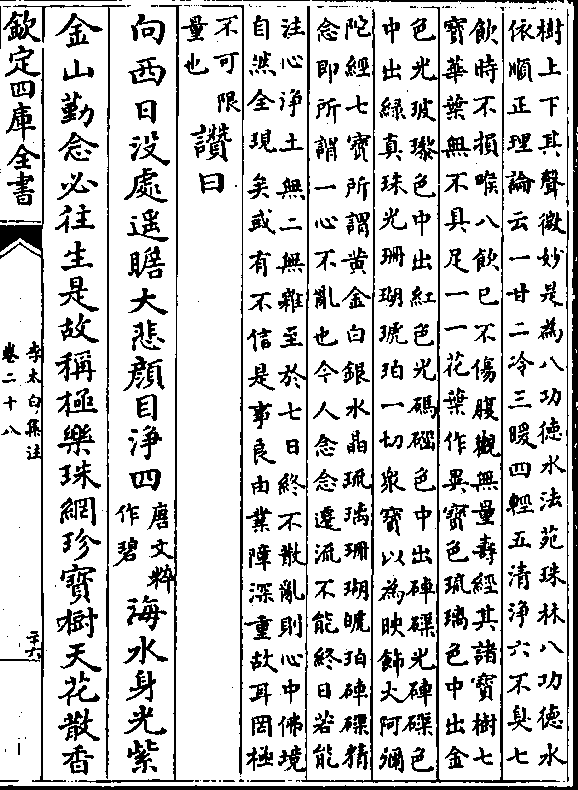 樹上下其聲微妙是為八功徳水法苑珠林八功徳水
依順正理論云一甘二冷三暖四輕五清淨六不臭七
飲時不損喉八飲已不傷腹觀無量壽經其諸寳樹七
寳華葉無不具足一一花葉作異寳色琉璃色中出金
色光玻瓈色中出紅色光碼碯色中出硨磲光硨磲色
中出綠真珠光珊瑚琥珀一切衆寳以為映飾阿彌
陀經七寳所謂黄金白銀水晶琉璃珊瑚琥珀硨磲精
念即所謂一心不亂也今人念念遷流不能終日若能
注心淨土無二無雜至於七日終不散亂則心中佛境
自然全現矣或有不信是事良由業障深重故耳罔極
不可限
量也
讚曰
向西日没處遥瞻大悲顔目淨四唐文粹作碧海水身光紫
金山勤念必往生是故稱極樂珠網珍寳樹天花散香
欽定四庫全書
李太白集注
卷二十八
二十六